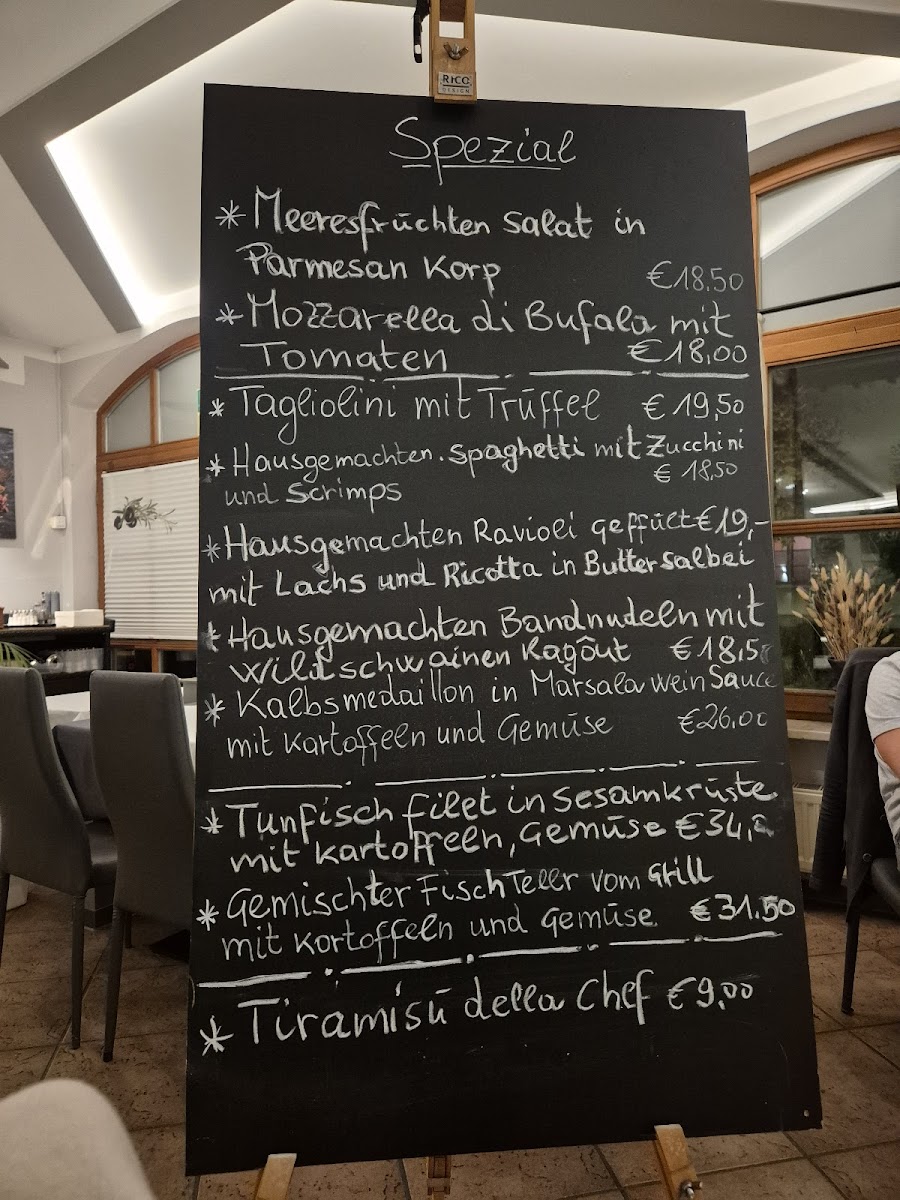 RICO
DESIGN
Spezial
* Meeresfrüchten Salat in
Parmesan Korp €18.50
* Mozzarella di Bufala mit
Tomaten €18,00
* Tagliolini mit Trüffel €19,50
* Hausgemachten. Spaghetti mit Zucchini
und Scrimps €18,50
* Hausgemachten Ravioli geffült €19,-
mit Lachs und Ricotta in Butter Salbei
* Hausgemachten Bandnudeln mit
Wildschwainen Ragôut €18,5
* Kalbsmedaillon in Marsala wein Sauce
mit Kartoffeln und Gemüse €26,00
* Tunfisch filet in Sesamkrüste
mit Kartoffeln, Gemüse €34,
* Gemischter Fisch Teller vom Grill
mit Kortoffeln und Gemüse €31.50
* Tiramisú della Chef €9,00